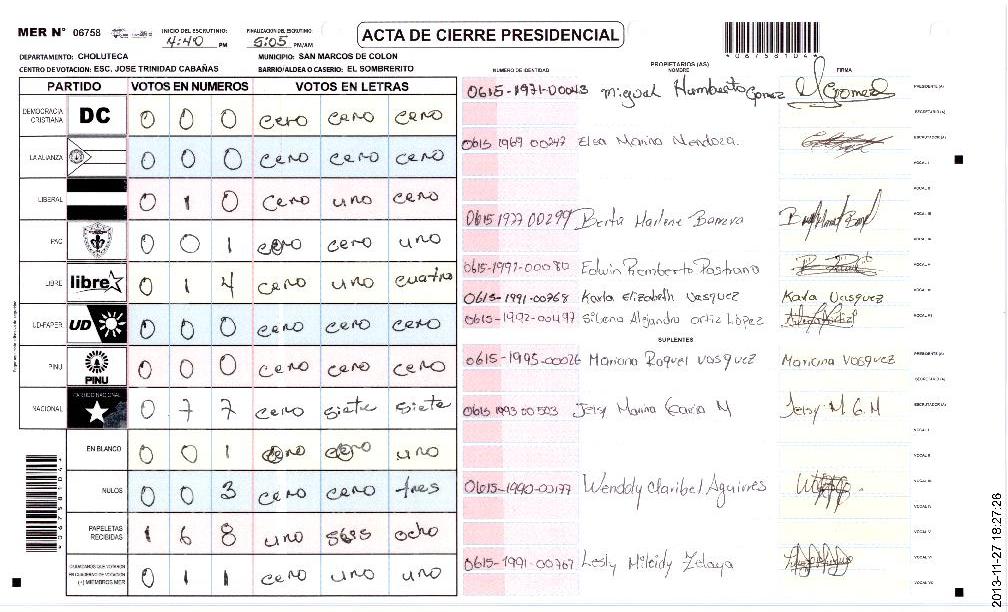 MER N° 06758 INICIO DEL ESCRUTINIO: 4:40 PM FINALIZACION DEL ESCRUTINIO 5:05 PM/AM
ACTA DE CIERRE PRESIDENCIAL
*06758104*
DEPARTAMENTO: CHOLUTECA MUNICIPIO: SAN MARCOS DE COLON
CENTRO DE VOTACION: ESC. JOSE TRINIDAD CABAÑAS BARRIO/ALDEA O CASERIO: EL SOMBRERITO
PARTIDO VOTOS EN NUMEROS VOTOS EN LETRAS
DEMOCRACIA CRISTIANA DC 0 0 0 cero cero cero
LA ALIANZA 0 0 0 cero cero cero
LIBERAL 0 1 0 cero uno cero
PAC 0 0 1 cero cero uno
LIBRE libre 0 1 4 cero uno cuatro
UD-FAPER UD 0 0 0 cero cero cero
PINU PINU 0 0 0 cero cero cero
NACIONAL PARTIDO NACIONAL 0 7 7 cero siete siete
EN BLANCO 0 0 1 cero cero uno
NULOS 0 0 3 cero cero tres
PAPELETAS RECIBIDAS 1 6 8 uno seis ocho
CIUDADANOS QUE VOTARON EN CUADERNO DE VOTACION (+) MIEMBROS MER 0 1 1 cero uno uno
PROPIETARIOS (AS)
NUMERO DE IDENTIDAD NOMBRE FIRMA
0615-1971-00043 Miguel Humberto Gomez PRESIDENTE (A)
SECRETARIO (A)
0615 1969 00247 Elsa Marina Mendoza. ESCRUTADOR (A)
VOCAL I
VOCAL II
0615-1977 00299 Berta Marlene VOCAL III
VOCAL IV
0615-1997-00080 Edwin VOCAL V
0615-1991-00768 Karla Elizabeth Vasquez Karla Vasquez VOCAL VI
0615-1992-00497 Alejandra Ortiz López VOCAL VII
SUPLENTES
0615-1995-00026 Mariana Raquel Vasquez Mariana Vasquez PRESIDENTE (A)
SECRETARIO (A)
0615 1993 00503 Jeisy Marina Garcia M Jeisy M G.M ESCRUTADOR (A)
VOCAL I
VOCAL II
0615-1990-00177 Wendoly Claribel Aguirres VOCAL III
VOCAL IV
VOCAL V
0615-1991-00767 Lesly Mileidy Zelaya VOCAL VI
VOCAL VII
2013-11-27 18:27:26